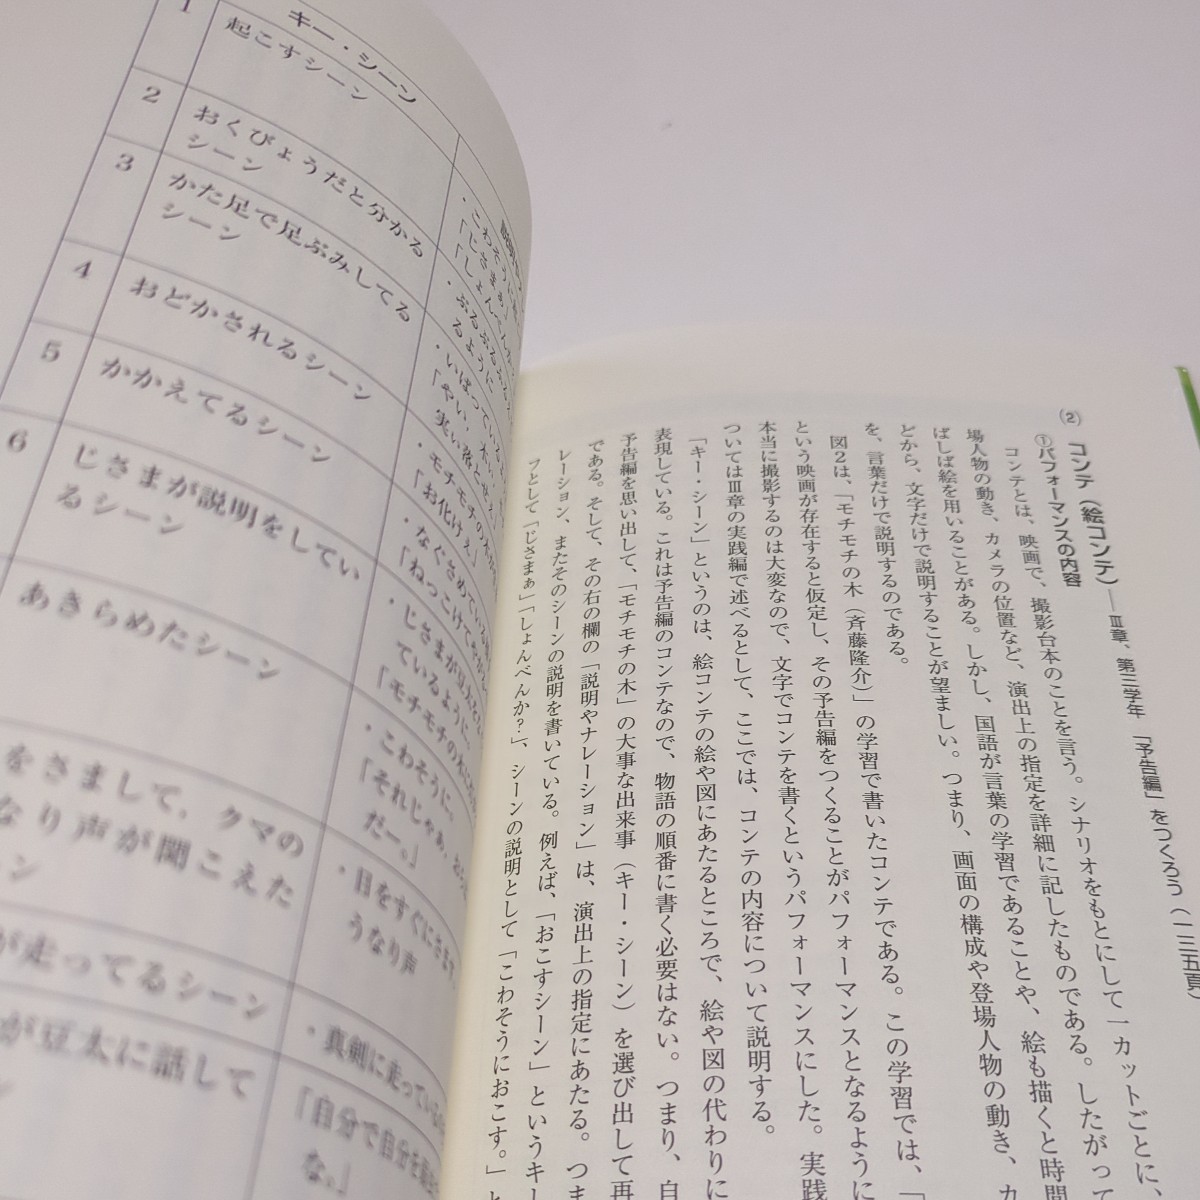 キー・シーン
1
起こすシーン
2
おくびょうだと分かる
シーン
3
かた足で足ぶみしてる
シーン
4
おどかされるシーン
5
かかえてるシーン
6
じさまが説明をしてい
るシーン
あきらめたシーン
をさまして，クマの
なり声が聞こえた
ーン
が走ってるシーン
が豆太に話して
・こわそうに
「じさまぁ」
・ぶるぶる
るように
・いばっている
「やい，木ぃ
・モチモチの木
「お化けぇ」
・なぐさめている
・じさまが豆太
ているように。
「モチモチの木
・こわそうに
「それじゃぁ，
だー。」
・目をすぐにさ
うなり声
・真剣に走っている
「自分で自分を
な。」
(2) コンテ（絵コンテ）――Ⅲ章、第三学年 「予告編」をつくろう（一三五頁）
①パフォーマンスの内容
コンテとは、映画で、撮影台本のことを言う。シナリオをもとにして一カットごとに、
場人物の動き、カメラの位置など、演出上の指定を詳細に記したものである。したがって
ばしば絵を用いることがある。しかし、国語が言葉の学習であることや、絵も描くと時間
どから、文字だけで説明することが望ましい。つまり、画面の構成や登場人物の動き、カ
を、言葉だけで説明するのである。
図２は、「モチモチの木（斉藤隆介）」の学習で書いたコンテである。この学習では、「
という映画が存在すると仮定し、その予告編をつくることがパフォーマンスとなるように
本当に撮影するのは大変なので、文字でコンテを書くというパフォーマンスにした。実践
ついてはⅢ章の実践編で述べるとして、ここでは、コンテの内容について説明する。
「キー・シーン」というのは、絵コンテの絵や図にあたるところで、絵や図の代わりに
表現している。これは予告編のコンテなので、物語の順番に書く必要はない。つまり、自
予告編を思い出して、「モチモチの木」の大事な出来事（キー・シーン）を選び出して再
である。そして、その右の欄の「説明やナレーション」は、演出上の指定にあたる。つま
レーション、またそのシーンの説明を書いている。例えば、「おこすシーン」というキー
フとして「じさまぁ」「しょんべんか？」、シーンの説明として「こわそうにおこす。」と